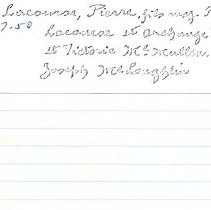 Lacourse, Pierre, fils maj. P
7.50
Lacourse et Archange
et Victoire McMullin.
Joseph McLoughlin